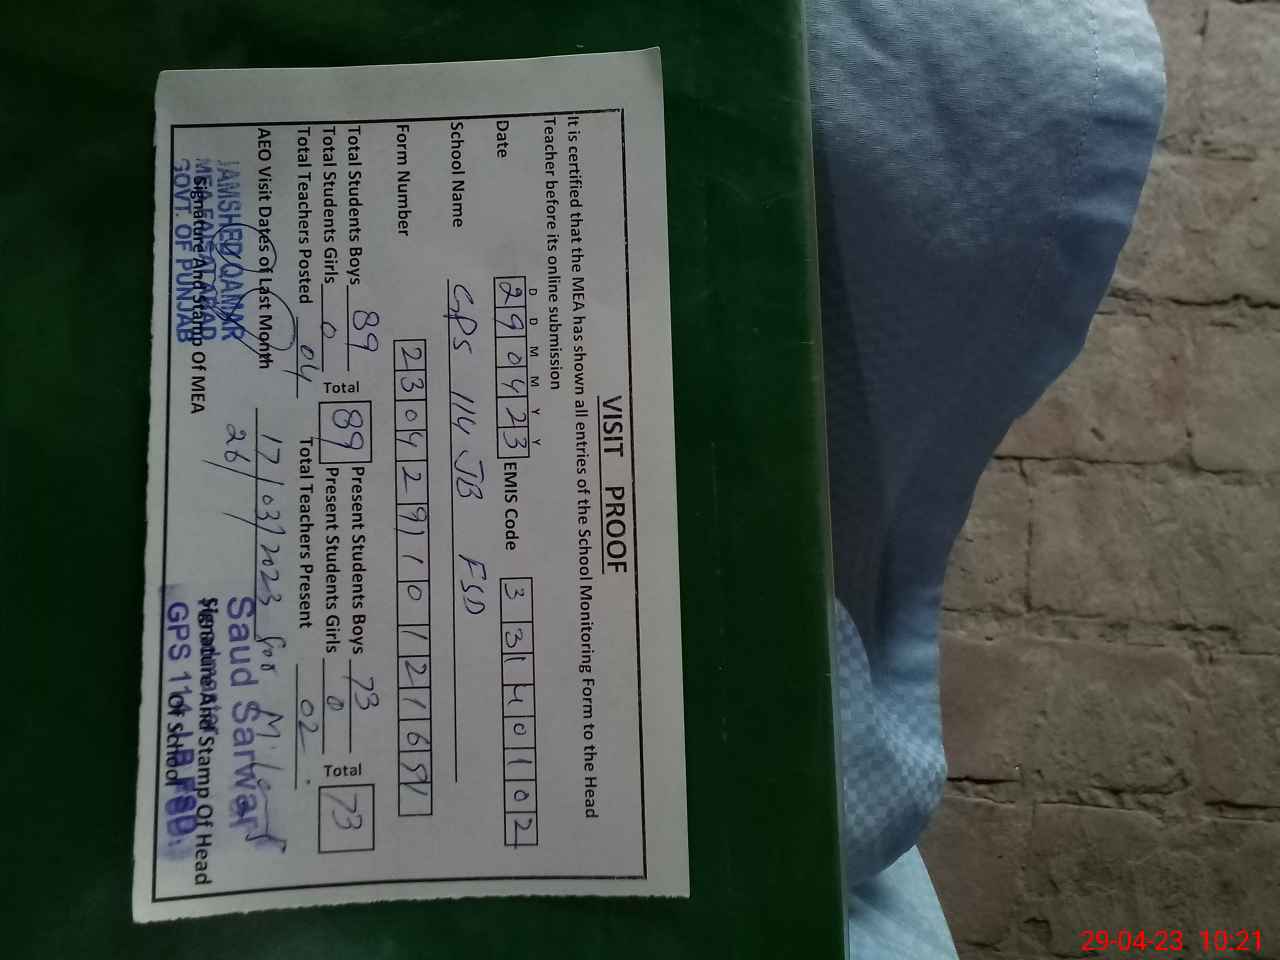 VISIT PROOF
It is certified that the MEA has shown all entries of the School Monitoring Form to the Head
Teacher before its online submission
D D M M Y Y
Date 290423 EMIS Code 33140102
School Name GPS 114 JB FSD
Form Number
Total Students Boys 89 Present Students Boys 73
Total Students Girls 0 Total 89 Present Students Girls 0 Total 73
Total Teachers Posted 04 Total Teachers Present 02
AEO Visit Dates of Last Month 17/03/2023
26/
JAMSHED QAMAR
MEA FAISALABAD
GOVT. OF PUNJAB
Signature And Stamp Of MEA
Saud Sarwar
Signature And Stamp Of Head
Of School
29-04-23 10:21